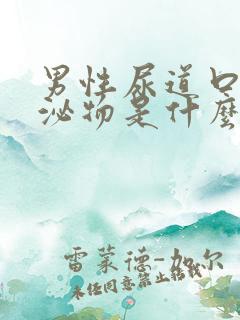 男性尿道口
泌物是什麼
雷蒙德-加尔
未经同意禁止转载